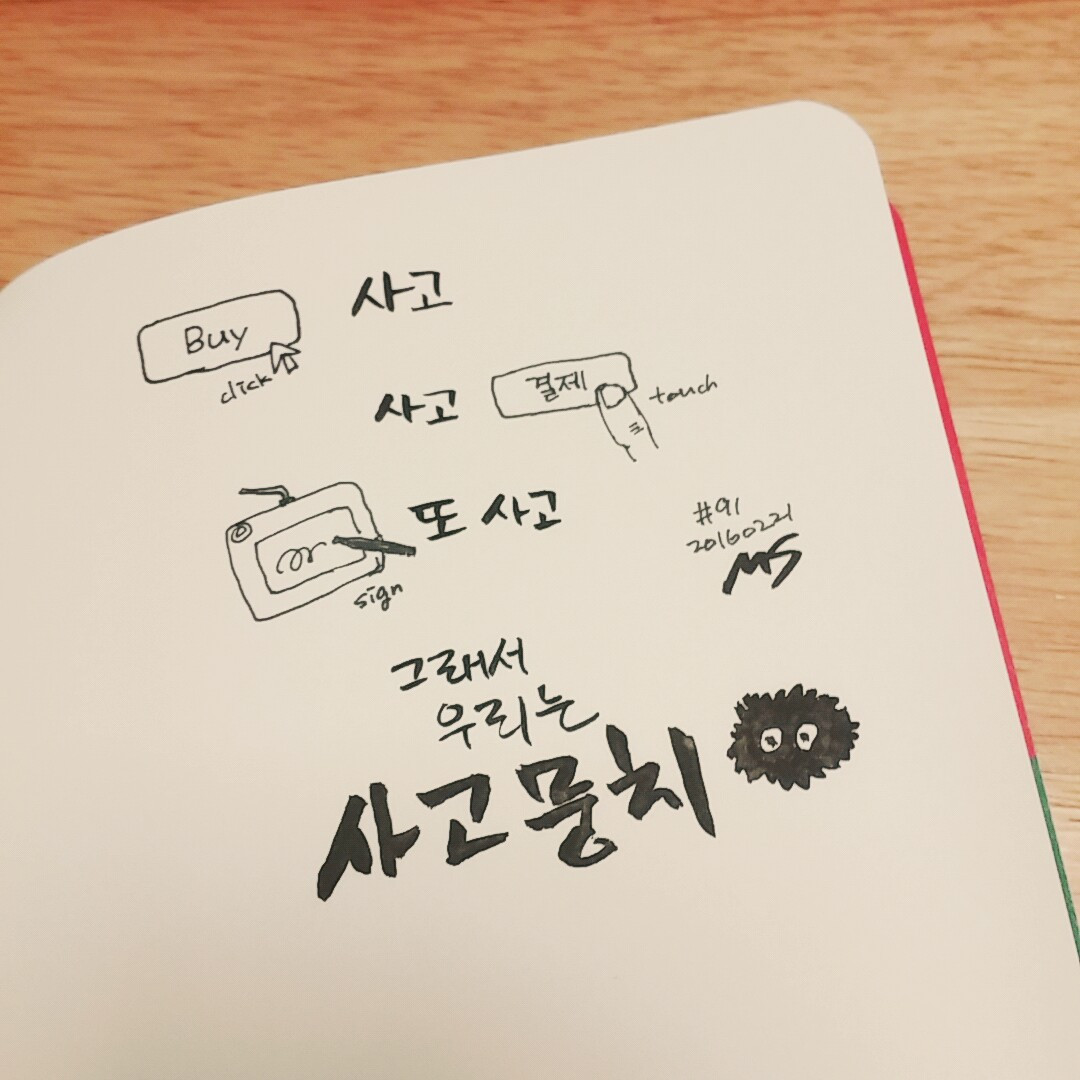 Buy 사고
click
사고 결제 touch
또 사고
sign
#91
20160221
MS
그래서
우리는
사고뭉치